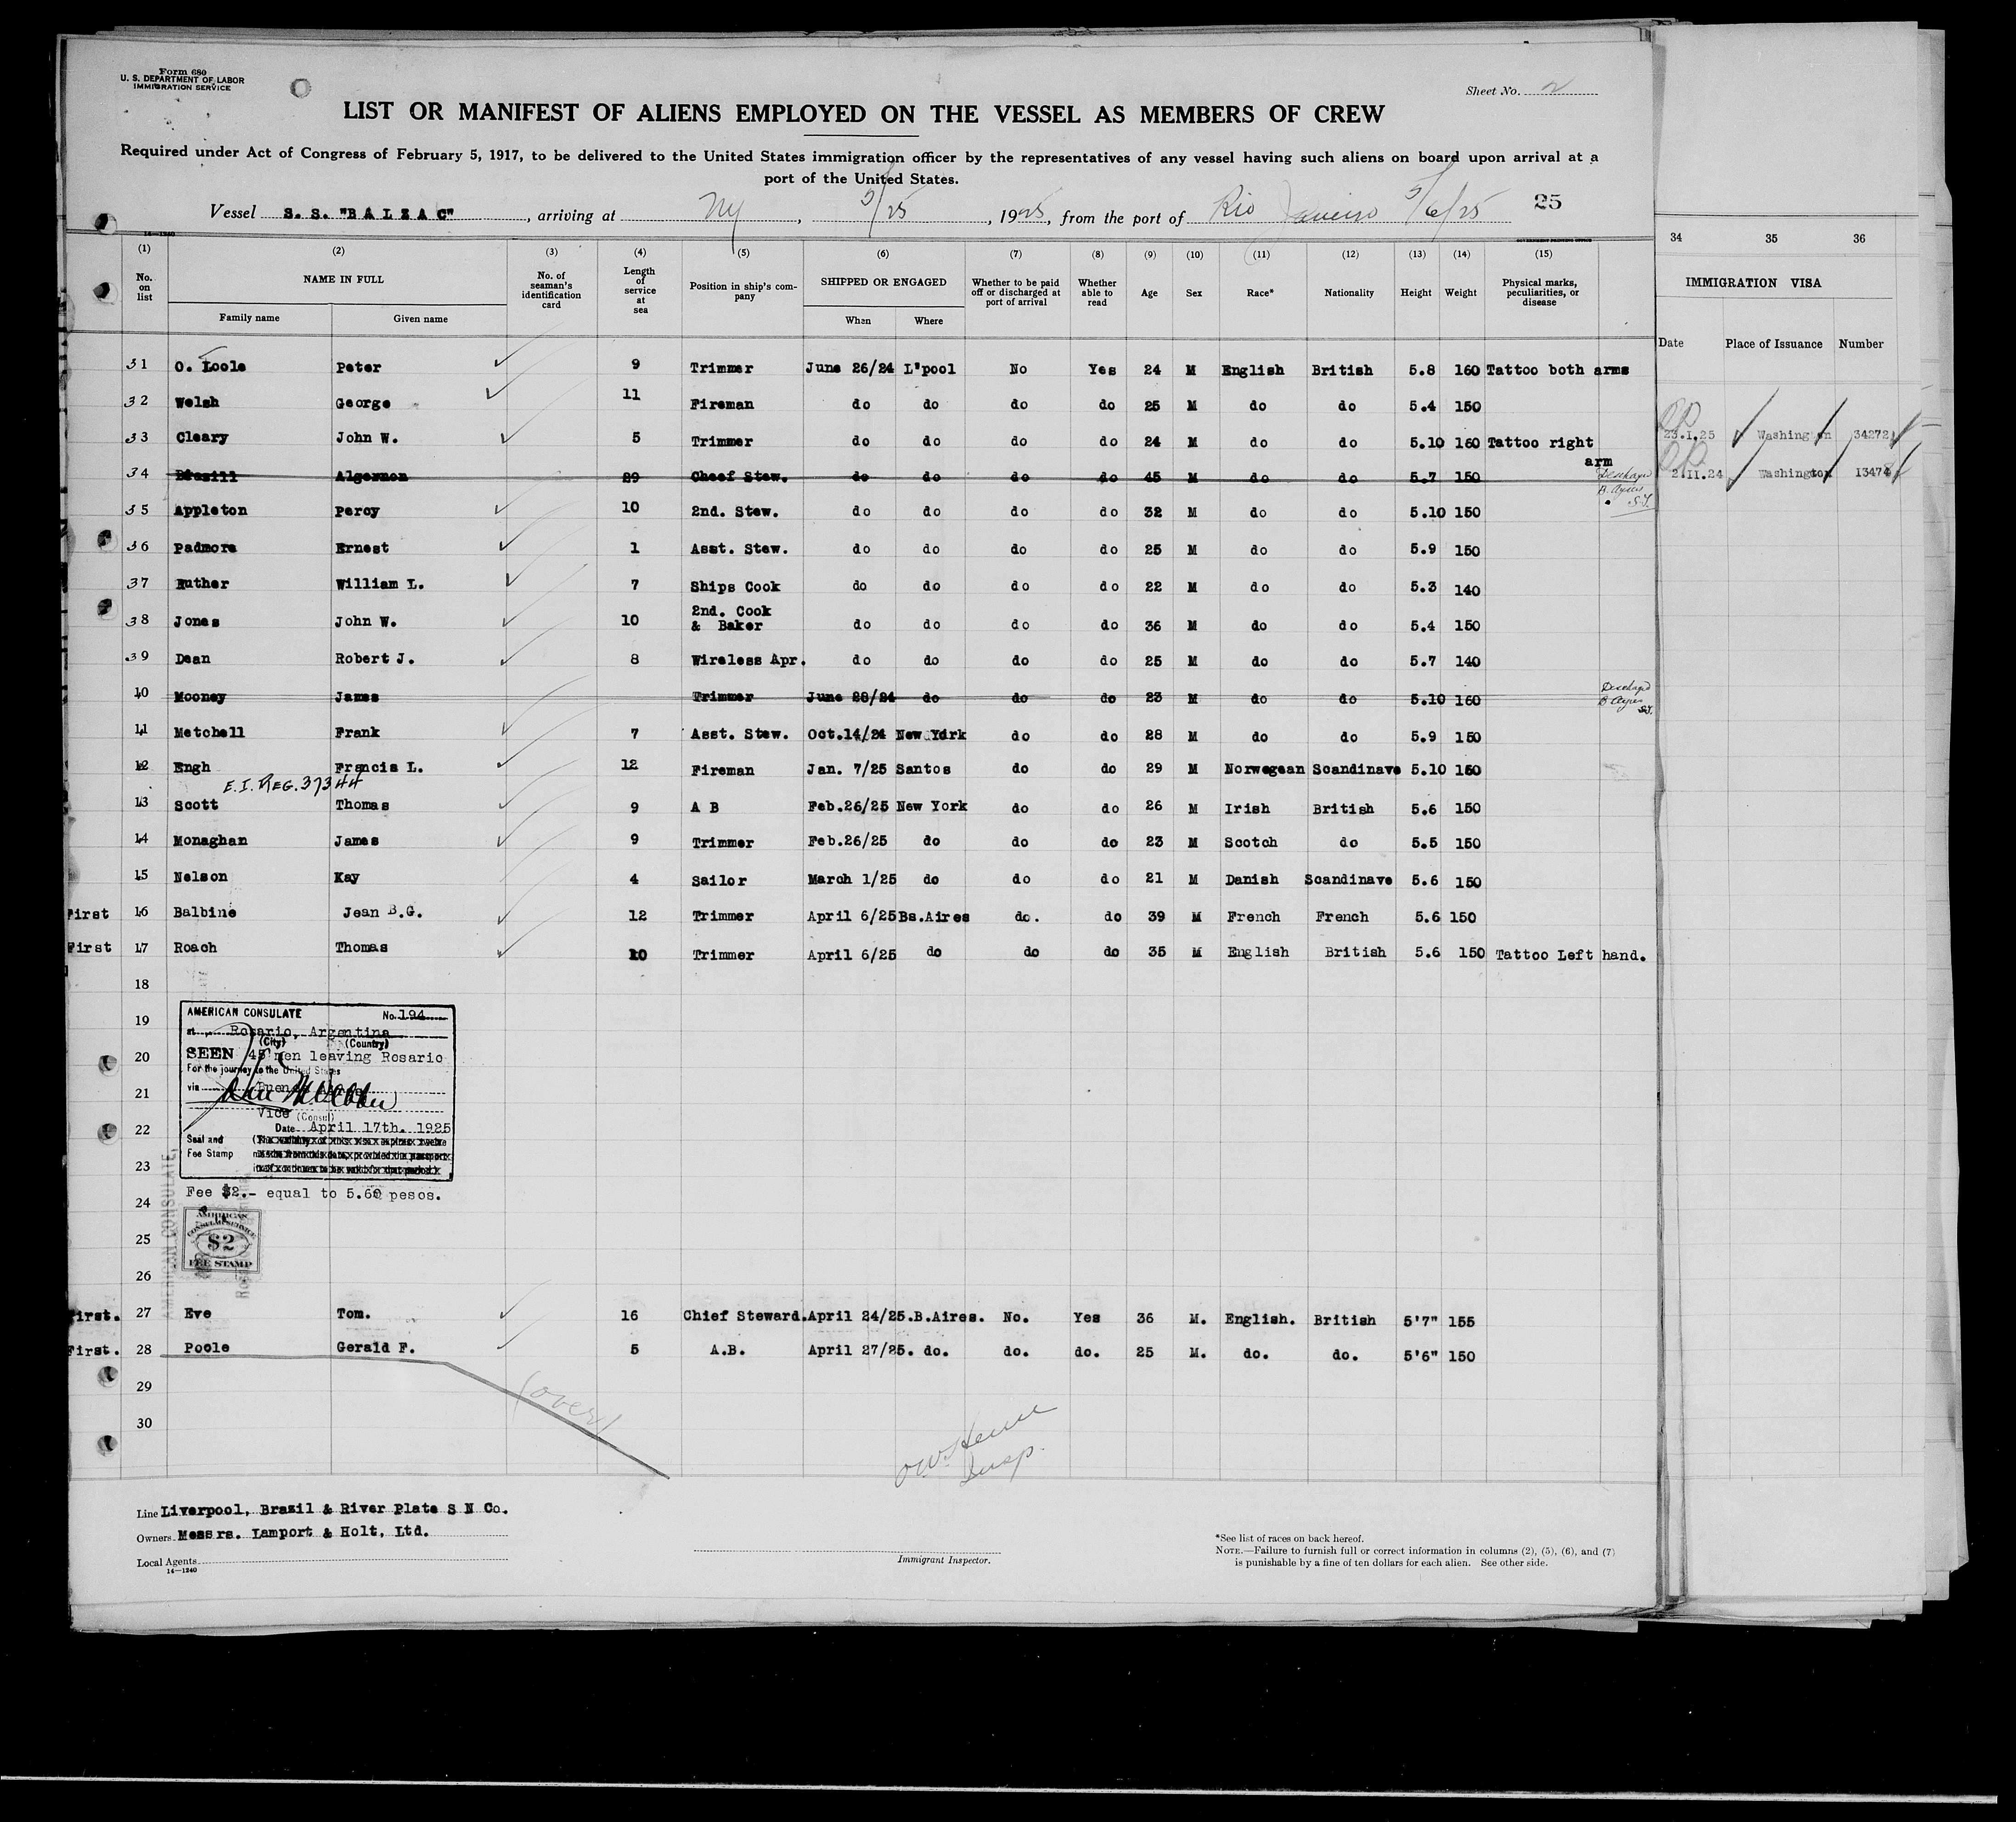 Form 680
U. S. DEPARTMENT OF LABOR
IMMIGRATION SERVICE
Sheet No. 2
LIST OR MANIFEST OF ALIENS EMPLOYED ON THE VESSEL AS MEMBERS OF CREW
Required under Act of Congress of February 5, 1917, to be delivered to the United States immigration officer by the representatives of any vessel having such aliens on board upon arrival at a
port of the United States.
Vessel S. S. "BALZAC", arriving at NY, 5/25, 1925, from the port of Rio Janeiro 5/6/25 25
14—1240
(1) (2) (3) (4) (5) (6) (7) (8) (9) (10) (11) (12) (13) (14) (15) 34 35 36
No. on list NAME IN FULL No. of seaman's identification card Length of service at sea Position in ship's company SHIPPED OR ENGAGED Whether to be paid off or discharged at port of arrival Whether able to read Age Sex Race* Nationality Height Weight Physical marks, peculiarities, or disease IMMIGRATION VISA
Family name Given name When Where Date Place of Issuance Number
31 O. Toole Peter 9 Trimmer June 26/24 L'pool No Yes 24 M English British 5.8 160 Tattoo both arms
32 Welsh George 11 Fireman do do do do 25 M do do 5.4 150
33 Cleary John W. 5 Trimmer do do do do 24 M do do 5.10 160 Tattoo right arm 23.I.25 Washington 34272
34 Algernon 29 Cheef Stew. do do do do 45 M do do 5.7 150 B. Ayres 2.II.24 Washington 13474
35 Appleton Percy 10 2nd. Stew. do do do do 32 M do do 5.10 150
36 Padmore Ernest 1 Asst. Stew. do do do do 25 M do do 5.9 150
37 Ruther William L. 7 Ships Cook do do do do 22 M do do 5.3 140
38 Jones John W. 10 2nd. Cook & Baker do do do do 36 M do do 5.4 150
39 Dean Robert J. 8 Wireless Apr. do do do do 25 M do do 5.7 140
10 Mooney James Trimmer June 28/24 do do do 23 M do do 5.10 160 B Ayres
11 Metchell Frank 7 Asst. Stew. Oct.14/24 New York do do 28 M do do 5.9 150
12 Engh Francis L. 12 Fireman Jan. 7/25 Santos do do 29 M Norwegean Scandinave 5.10 160
E.I. REG. 37344
13 Scott Thomas 9 A B Feb.26/25 New York do do 26 M Irish British 5.6 150
14 Monaghan James 9 Trimmer Feb.26/25 do do do 23 M Scotch do 5.5 150
15 Nelson Kay 4 Sailor March 1/25 do do do 21 M Danish Scandinave 5.6 150
First 16 Balbine Jean B.G. 12 Trimmer April 6/25 Bs.Aires do. do 39 M French French 5.6 150
First 17 Roach Thomas 10 Trimmer April 6/25 do do do 35 M English British 5.6 150 Tattoo Left hand.
18
19
20
21
22
23
24
25
26
AMERICAN CONSULATE No. 194
at Rosario, Argentina
(City) (Country)
SEEN 45 men leaving Rosario
For the journey to the United States
via Buenos Aires
Vice (Consul)
Date April 17th. 1925
Seal and
Fee Stamp
Fee $2.- equal to 5.60 pesos.
AMERICAN
CONSULAR SERVICE
$2
FEE STAMP
AMERICAN CONSULATE
First. 27 Eve Tom. 16 Chief Steward. April 24/25. B.Aires. No. Yes 36 M. English. British 5'7" 155
First. 28 Poole Gerald F. 5 A.B. April 27/25. do. do. do. 25 M. do. do. 5'6" 150
29
30
(over)
Insp.
Line Liverpool, Brazil & River Plate S N Co.
Owners Messrs. Lamport & Holt, Ltd.
Local Agents
14—1240
Immigrant Inspector.
*See list of races on back hereof.
NOTE.—Failure to furnish full or correct information in columns (2), (5), (6), and (7)
is punishable by a fine of ten dollars for each alien. See other side.